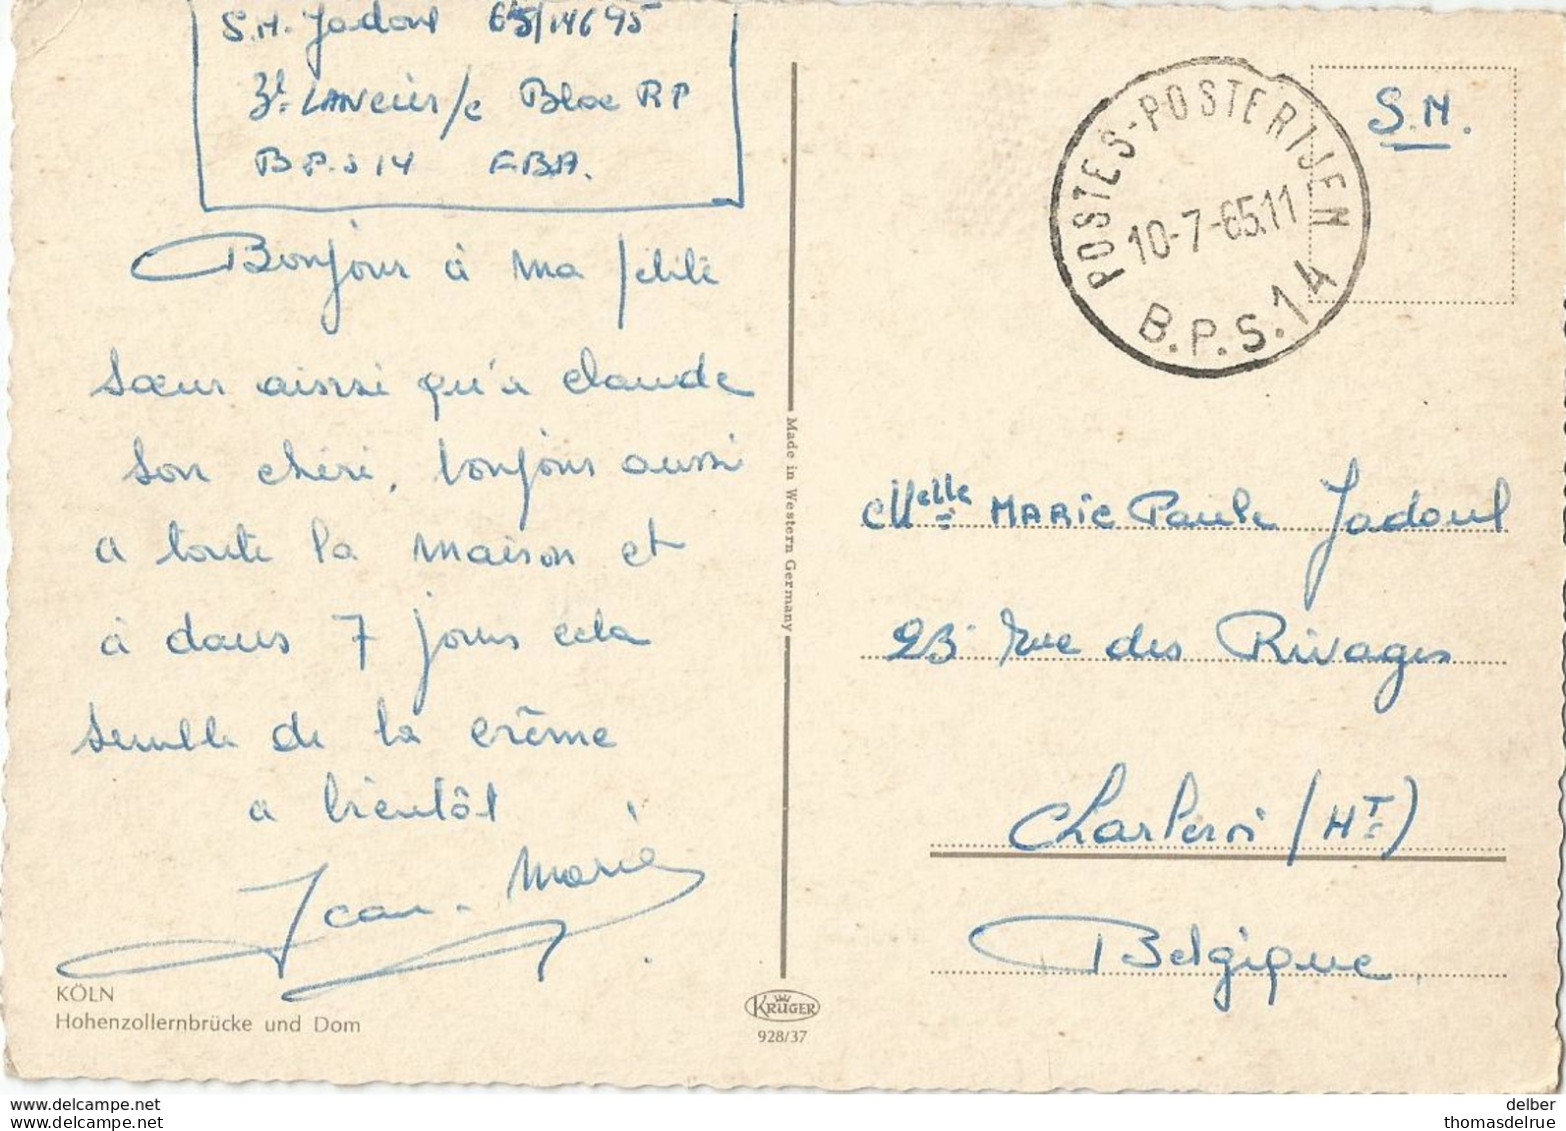 S.M. Jadoul 65/14695
3e LANCIERS/C Bloc RP
B.P.S 14 F.B.A.
Bonjour à ma petite
soeur ainsi qu'à claude
son chéri, toujours aussi
a toute la maison et
à dans 7 jours cela
semble de la crême
a bientôt
Jean-Marie
KÖLN
Hohenzollernbrücke und Dom
Made in Western Germany
KRÜGER
928/37
POSTES-POSTERIJEN
10-7-65.11
B.P.S.14
S.M.
Melle MARIE Paule Jadoul
23 rue des Rivages
Charleroi (HT)
Belgique
www.delcampe.net
www.delcampe.net
delber
thomasdelrue